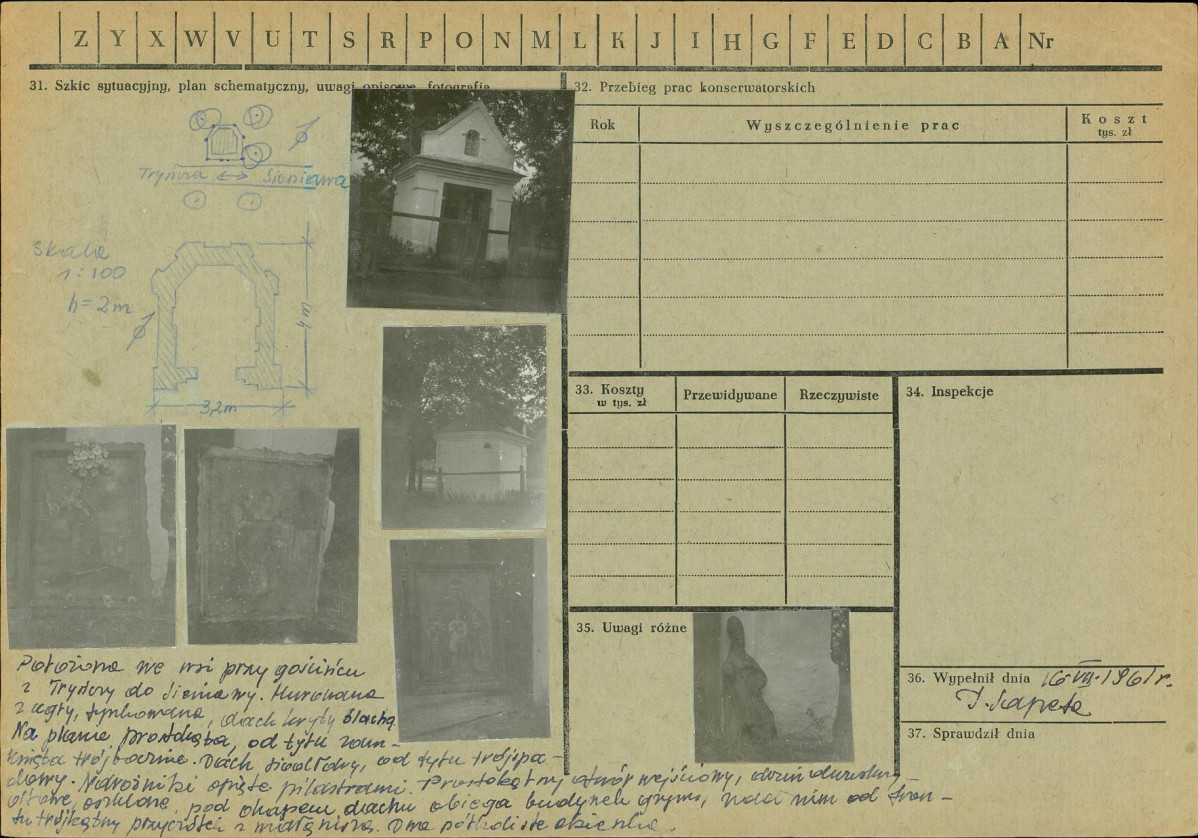 Z Y X W V U T S R P O N M L K J I H G F E D C B A Nr
31. Szkic sytuacyjny, plan schematyczny, uwagi opisowe, fotografia
Tryńcza ↔ Sieniawa
Skala
1:100
h = 2 m
4 m
3,2 m
Położona we wsi przy gościńcu
z Tryńczy do Sieniawy. Murowana
z cegły, tynkowana, dach kryty blachą.
Na planie prostokąta, od tyłu zam-
knięta trójbocznie. Dach siodłowy, od tyłu trójspa-
dowy. Narożniki opięte pilastrami. Prostokątny otwór wejściowy, drzwi
oszklone, pod okapem dachu obiega budynek gzyms, nad nim od fron-
tu trójkątny przyczółek z małą niszą. Dwa półkoliste okienka.
32. Przebieg prac konserwatorskich
Rok
Wyszczególnienie prac
Koszt
tys. zł
33. Koszty
w tys. zł
Przewidywane
Rzeczywiste
34. Inspekcje
35. Uwagi różne
36. Wypełnił dnia 16 VII 1961 r.
37. Sprawdził dnia